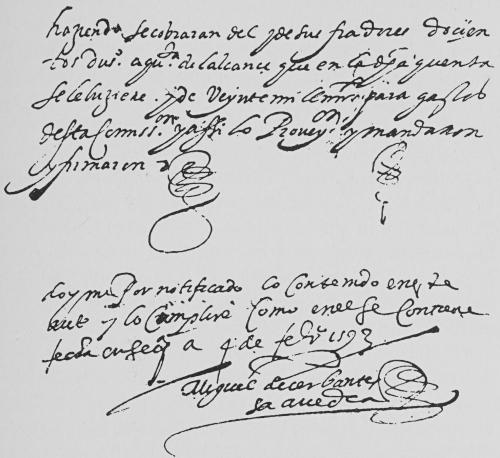 haziendo se cobraran del y de sus fiadores docien
tos du.os a qu.ta del alcance que en la d.ha quenta
se le hiziere y de veynte mill mrs para gastos
desta comiss.on y assi lo Proveyeron y mandaron
y firmaron
doyme Por notificado lo contenido en este
auto y lo Cumplire Como en el se Contiene
fecha en seu.a a 4 de febr.o 1593
Miguel de cerbantes
saavedra